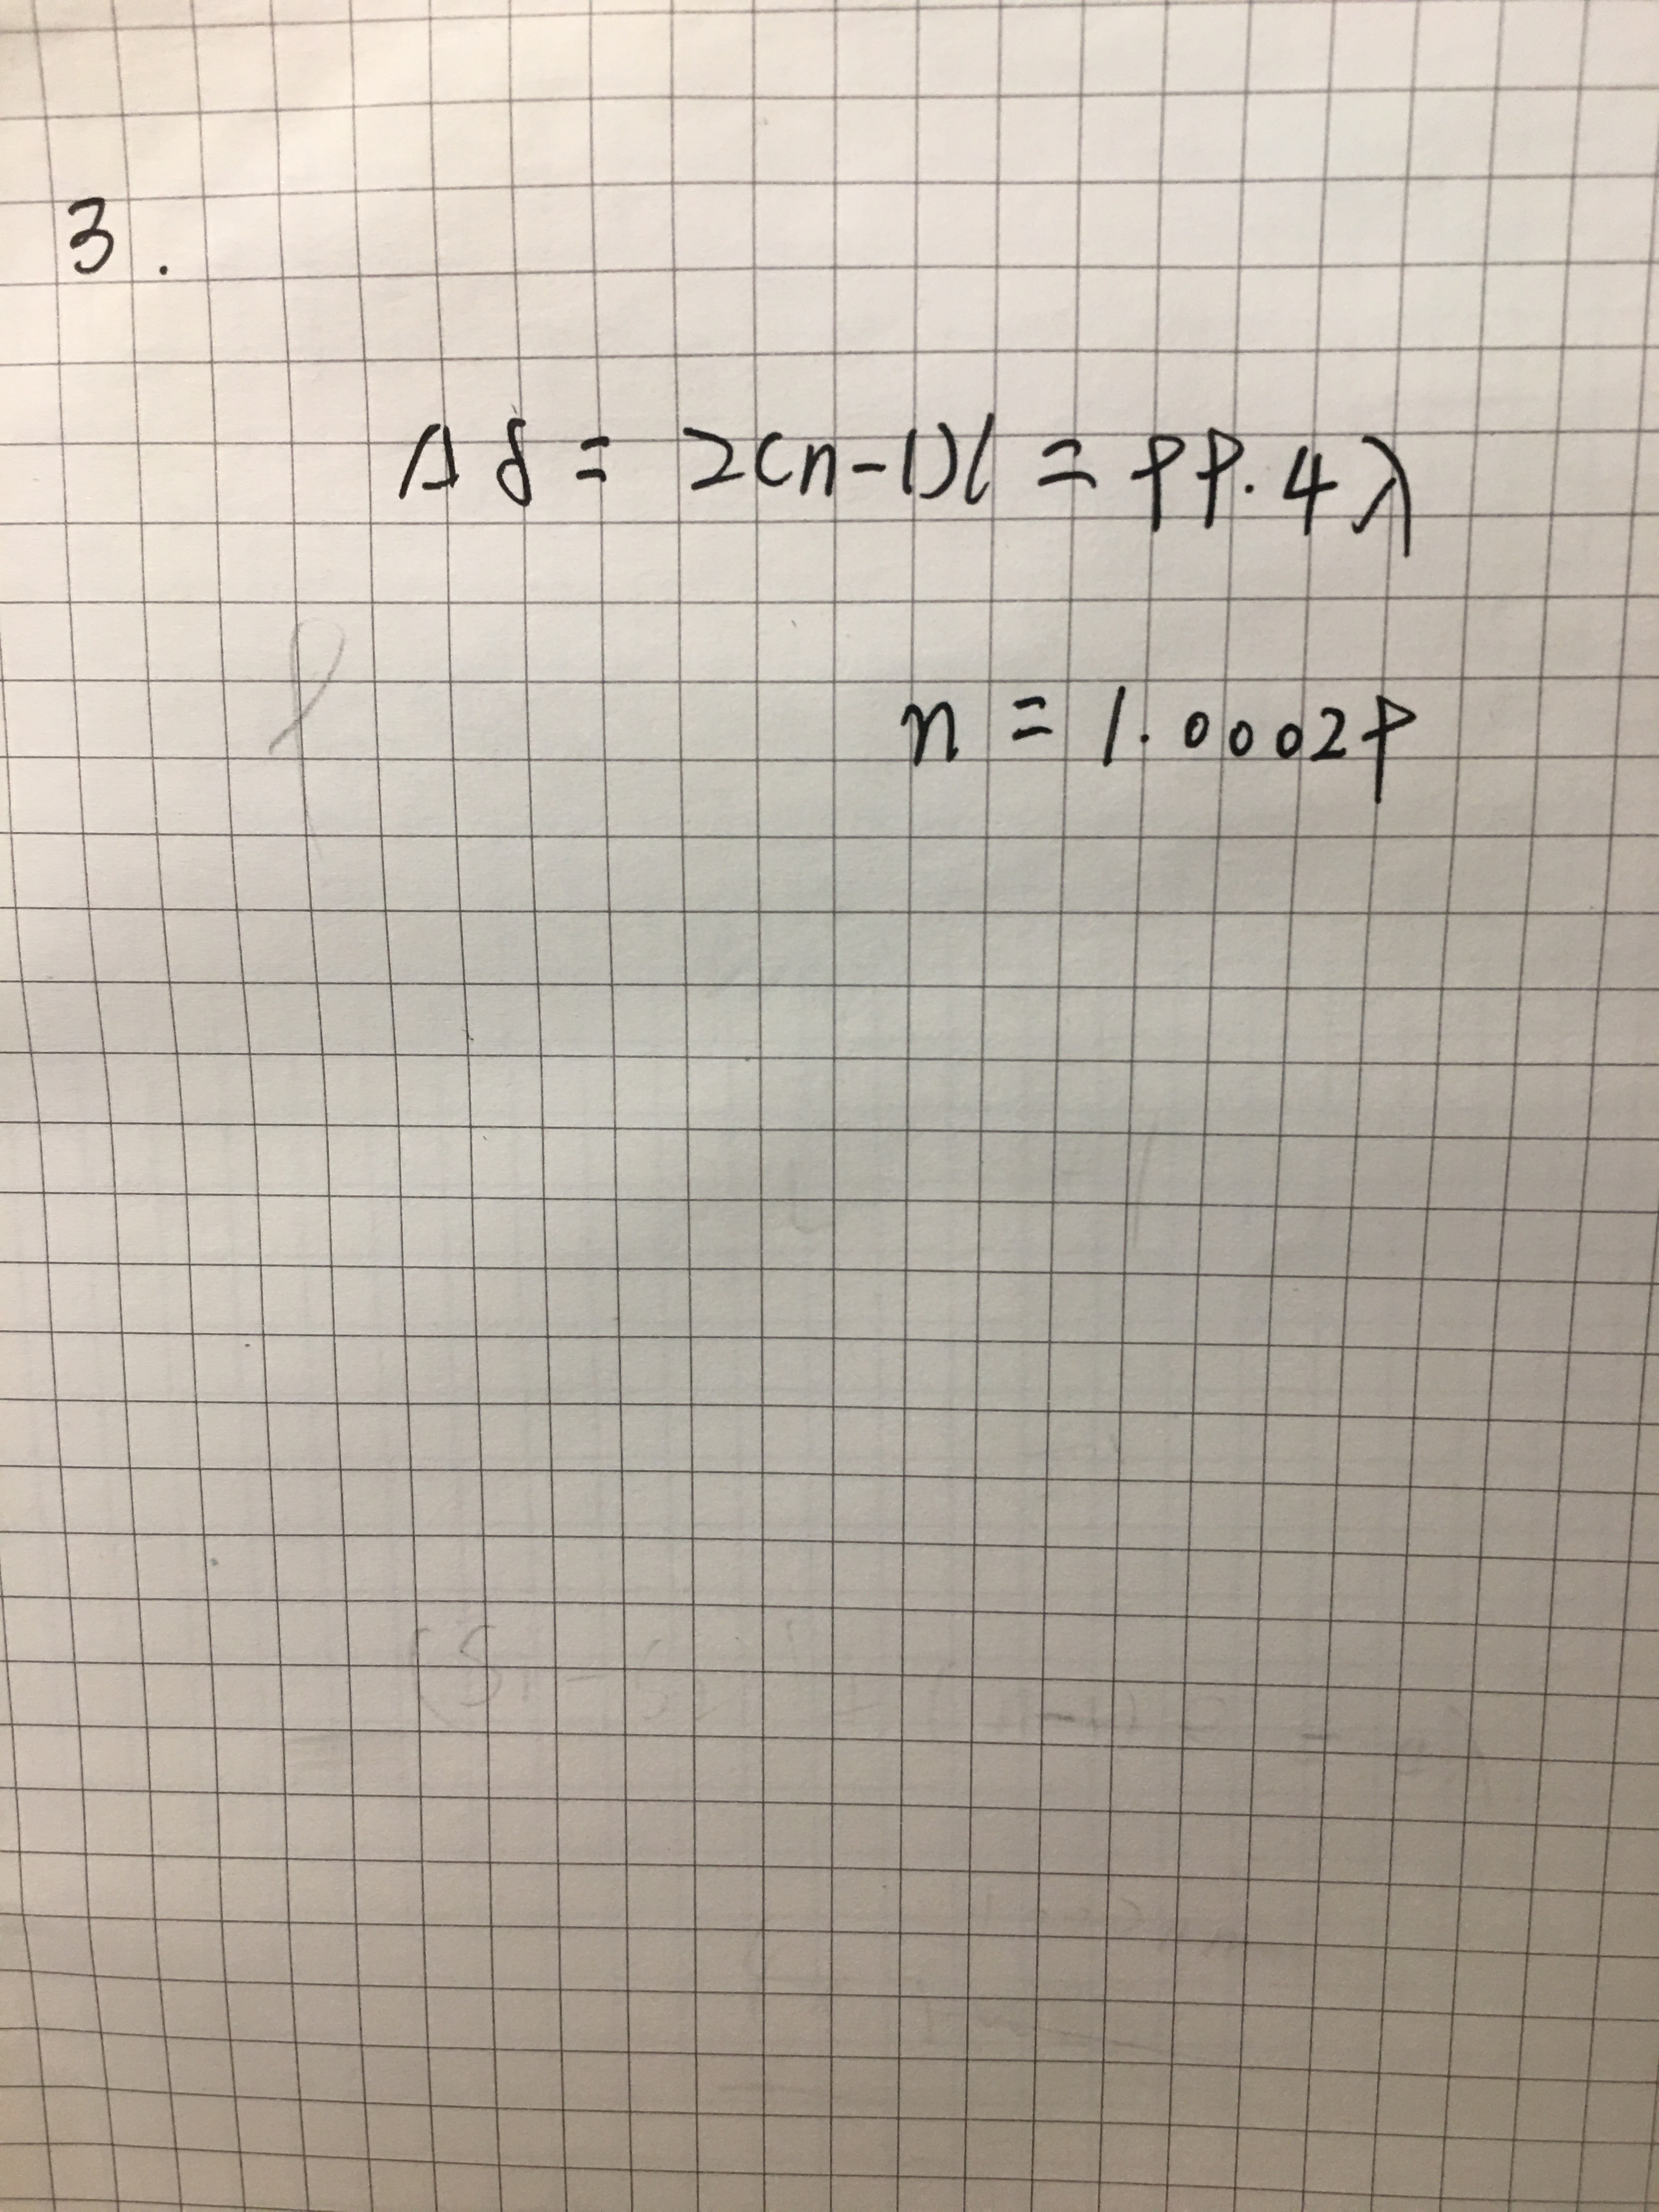 3.
Δδ = 2(n-1)l = 99.4λ
n = 1.00029